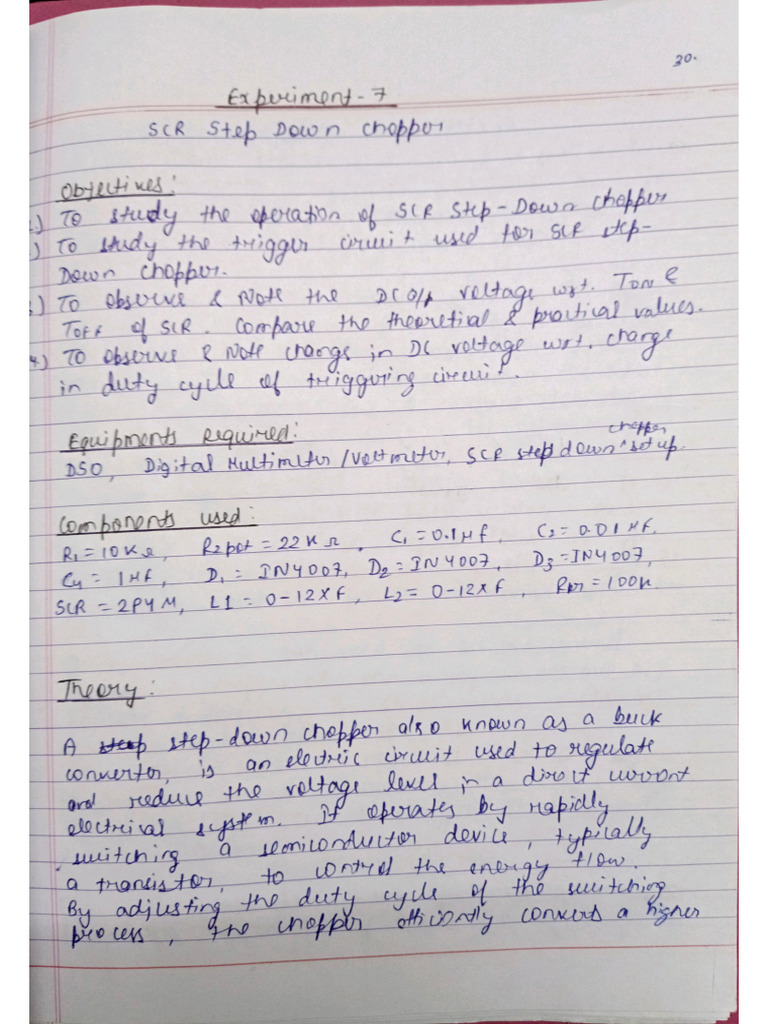 30.
Experiment-7
SCR Step Down Chopper
Objectives:
) To study the operation of SCR Step-Down Chopper
) To study the trigger circuit used for SCR step-
Down chopper.
) To observe & Note the DC O/p voltage wrt. TON &
TOFF of SCR. Compare the theoretial & practical values.
4.) To observe & Note change in DC voltage wrt. change
in duty cycle of triggering circuit.
Equipments Required:
DSO, Digital Multimeter/Voltmeter, SCR step down ^chopper setup.
Components used:
R1 = 10KΩ, R2pot = 22KΩ, C1 = 0.1µf, C2 = 0.01µF,
C4 = 1µf, D1 = IN4007, D2 = IN4007, D3 = IN4007,
SCR = 2P4M, L1 = 0-12XF, L2 = 0-12XF, = 100K
Theory:
A step-down chopper also known as a buck
convertor, is an electric circuit used to regulate
and reduce the voltage level in a direct current
electrical system. It operates by rapidly
switching a semiconductor device, typically
a transistor, to control the energy flow.
By adjusting the duty cycle of the switching
process, the chopper efficiently converts a higher